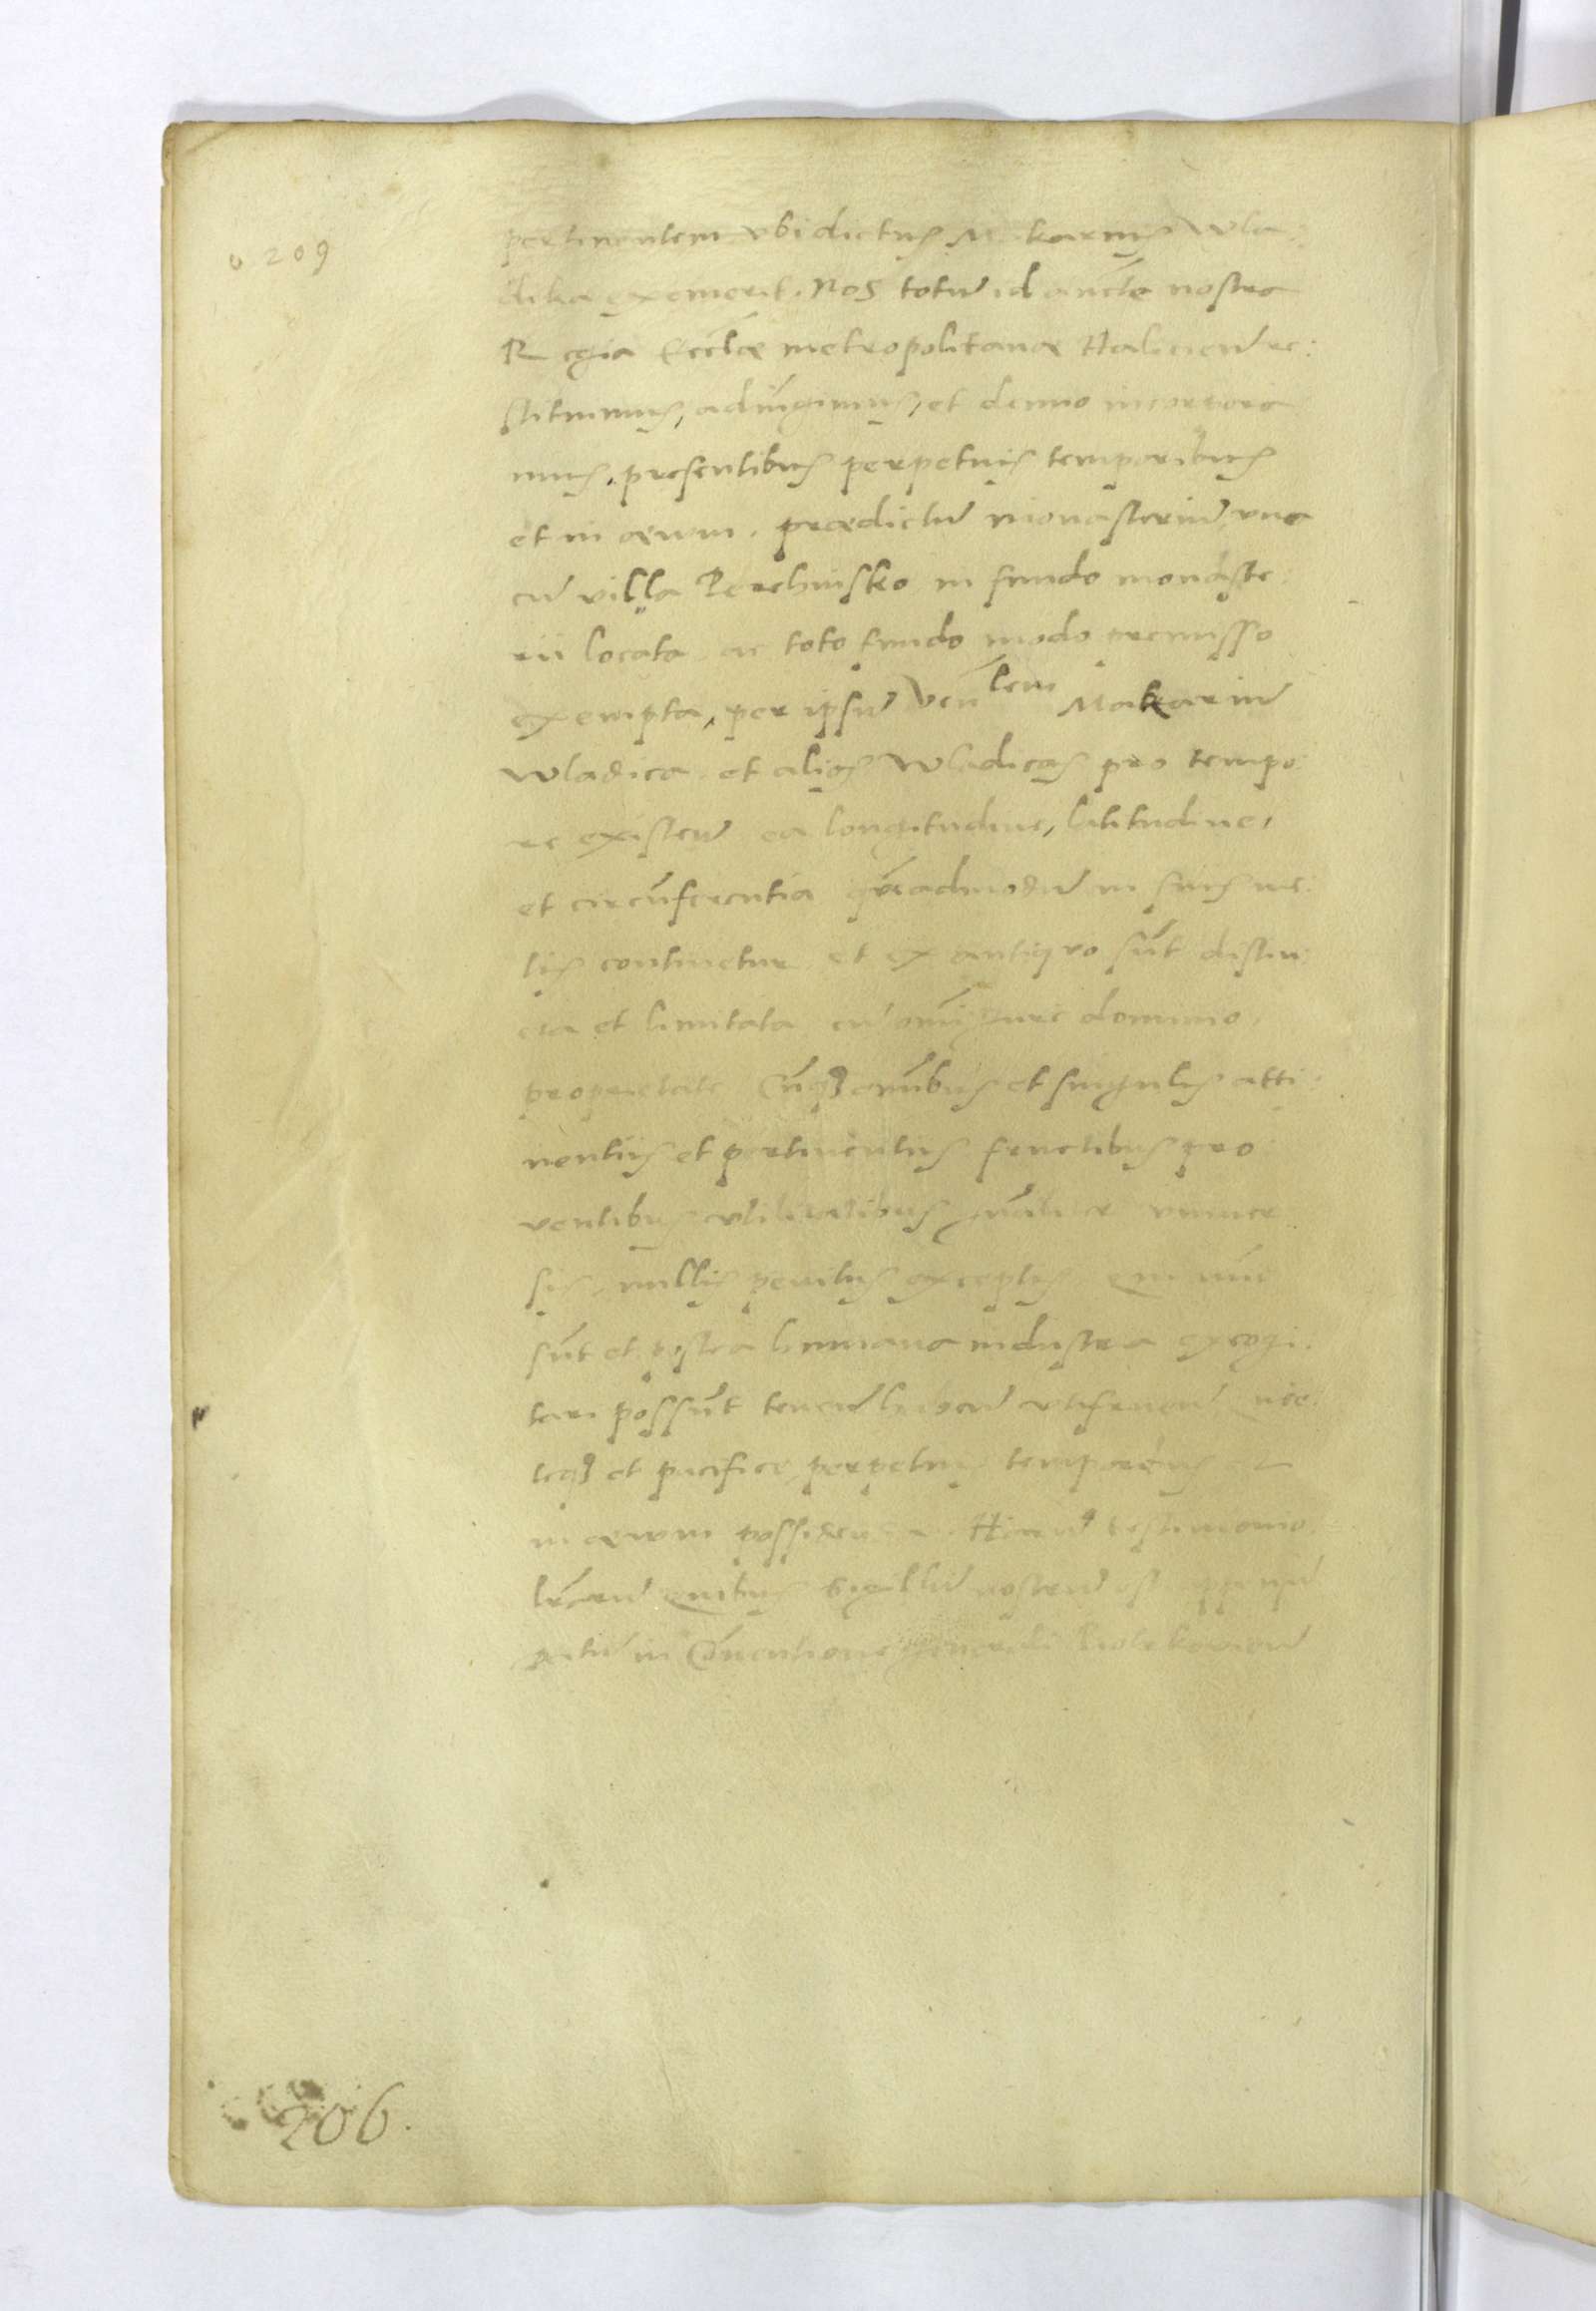 v. 209
pertinentem vbi dictus Makarius Wla:
dika exemerit. Nos totu͂ id aucte nostra
Regia Eccl͂æ metropolitanæ Halicien͂ re:
stituimus, adiu͂gimus, et denuo incorpora
mus. presentibus perpetuis temporibus
et in ævum. prædictu͂ monasteriu͂ vna
cu͂ villa Perehinsko in fundo monaste:
rii locata ac toto fundo modo premisso
exempta, per ipsu͂ Ven͂lem Makariu͂
Wladica et alios Wladicas pro tempo:
re existen͂ ea longitudine, latitudine,
et circu͂ferentia que͂admodu͂ in suis me:
tis continetur et ex antiquo su͂t distin:
cta et limitata cu͂ omni iure dominio,
proprietate Cu͂q₃ omn͂ibus et singulis atti:
nentiis et pertinentiis fructibus pro
ventibus vtilitatibus vniuer
sis, nullis penitus exceptis
su͂t et postea humana industria excogi:
tari possu͂t tenen͂ haben͂ vtifruen͂
teq₃ et pacifice perpetuis temporibus et
in ævum possiden͂ Haru͂ testimonio
l͂raru͂ quibus Sigillu͂ nostru͂ est
in Co͂nuentione generali
206.